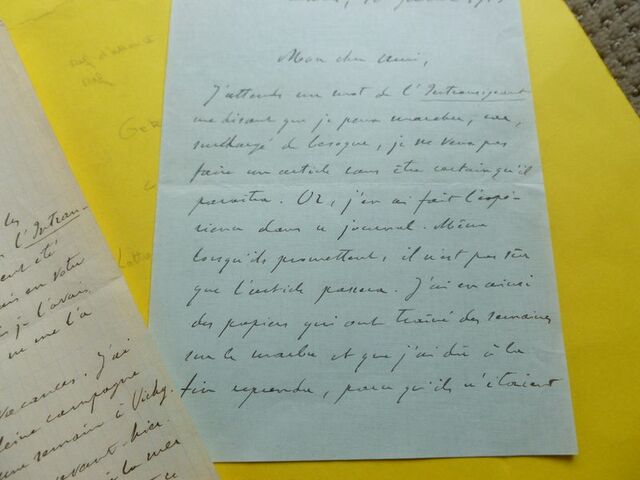 Mon cher ami,
J'attends un mot de l'Intransigeant
me disant que je peux marcher, car,
surchargé de besogne, je ne veux pas
faire un article sans être certain qu'il
paraitra. Or, j'en ai fait l'expé-
rience dans ce journal. Même
lorsqu'ils promettent, il n'est pas sûr
que l'article passera. J'ai eu ainsi
des papiers qui ont traîné des semaines
sur le marbre et que j'ai dû à la
fin reprendre, parce qu'ils n'étaient
les
l'Intran-
été
en votre
je l'avais
me l'a
vacances. J'ai
pleine campagne
une semaine à Vichy.
avant-hier.
à la mer